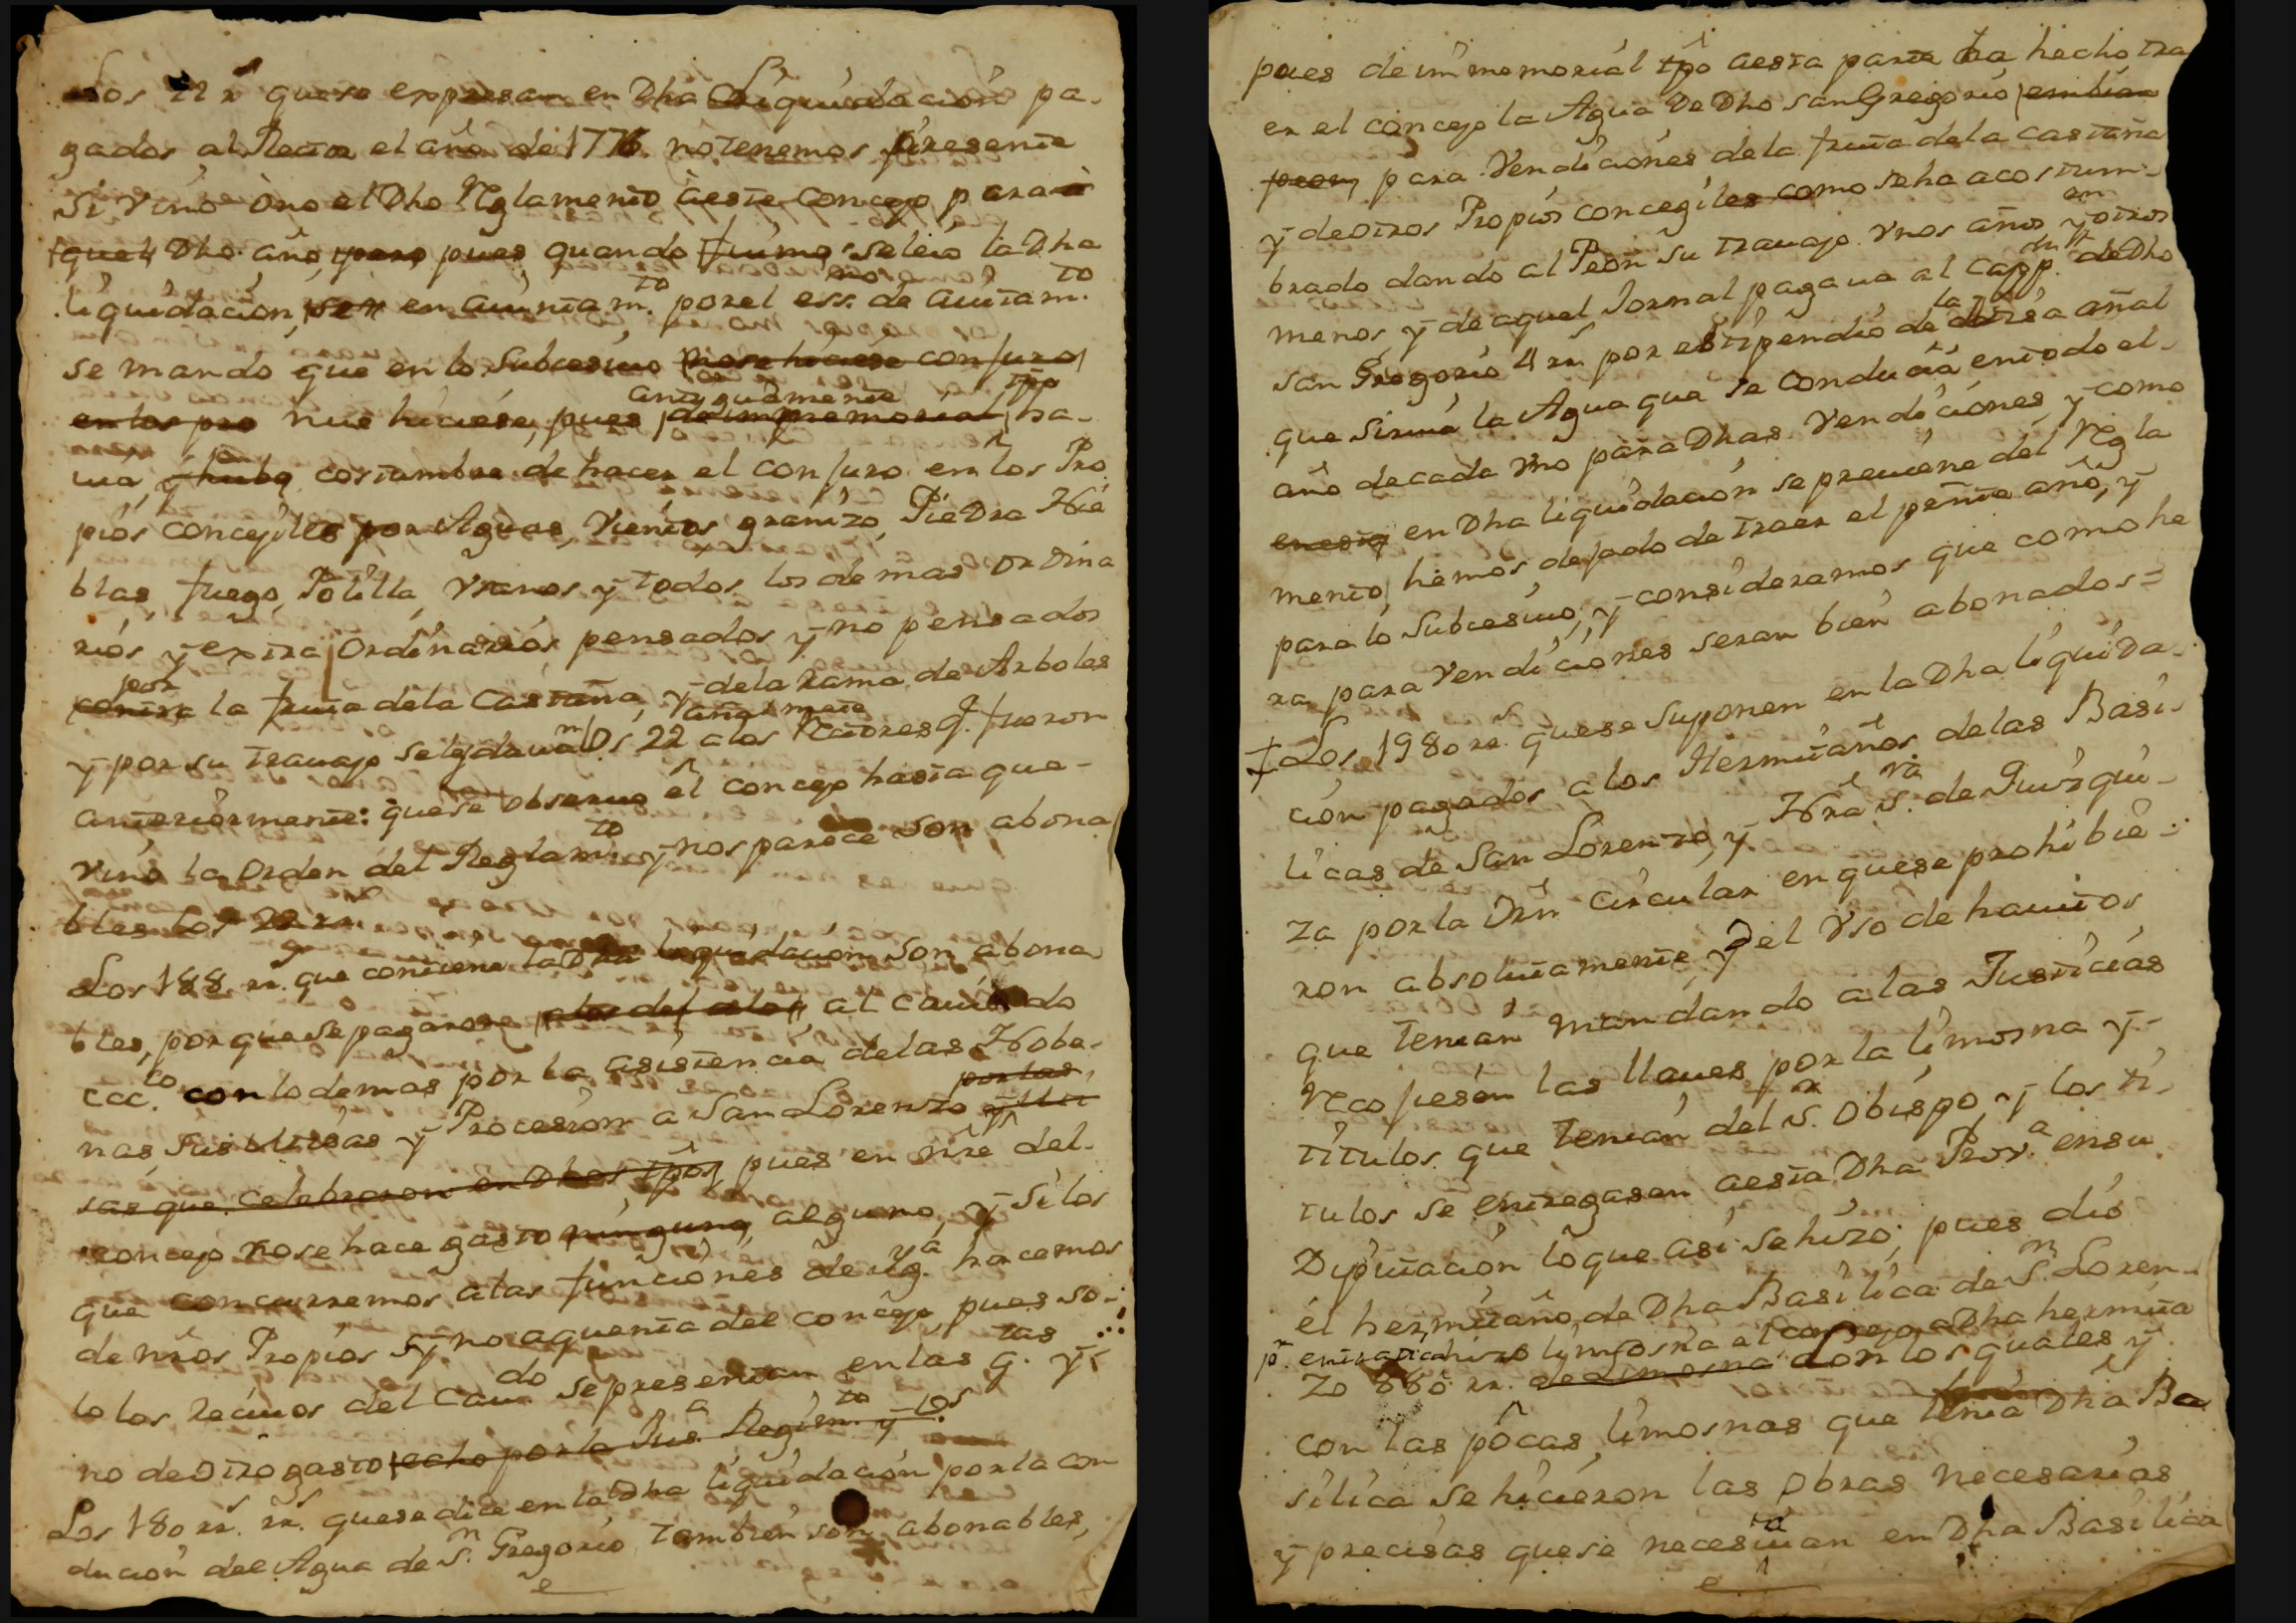 Los 22 rˢ que se expresan en Dha Liquidacion pa-
gados al Retor el año de 1776 no tenemos presente
si vino òno el Dho Reglamento àeste concejo para
aquel Dho año, pero pues quando fuimos se leió la Dha
liquidacion, en aiuntamᵗᵒ. por el essⁿᵒ. de aiutamᵗᵒ.
se mandó que en lo Subcesivo nose hiciese conjuro
en los pro nue hiciese, pues antiguamente de immemorial tp̃o ha-
uia, y hubo costumbre de hacer el conjuro en los Pro
pios concejiles por Aguas, Vientos, granizo, PieDra Nie
blas, fuego, Polilla, Vranos y todos los demas ORDina
rios y extra Ordinarios, pensados y no pensados
contra por la fruta dela Castaña, y dela Rama de Arboles
y por su trauajo seles dauan añalmete los 22 alos Retores q. fueron
anteriormente: que se observó el concejo hasta que-
vino la Orden del Reglamᵗᵒ. y nos parece son abona
bles los 22 rˢ.
Los 188 rˢ. que contiene la Dha liquidacion son abona
bles, por que se pagaron al Cauildo
Eccᶜᵒ. con lo demas por la asistencia delas Nobe-
nas, sus Misas y Procesion a San Lorenzo por las
sas que celebraron en Dhos tp̃os, pues en nr̃e del-
concejo nose hace gasto ninguno, alguno, y si los
que concurremos alas funciones de Ygᵃ. hacemos
de nr̃os Propios y no aquenta del concejo, pues so-
lo los Recivos del Cauᵈᵒ se presentan en las qᵗᵃˢ. y
no de otro gasto echo por la Jusᵃ. Regimᵗᵒ y Vˢ.
Los 180 rˢ. rˢ. que se dice en la Dha liquidacion por la con
ducion del Agua de Sⁿ. Gregorio tambien son abonables,
pues de immemorial tp̃o aesta parte ha hecho tra
er el concejo la Agua De Dho san Gregorio embian
peon, para Vendiciones dela fruta dela castaña
y de otros Propios concegiles como seha acostum-
brado dando al Peon su trauajo Vnos años en y otros
menos, y de aquel Jornal pagaua al Cappⁿ. de Dho
san Gregorio 4 rˢ. por estipendio de la Misa añal
que Siruia la Agua que se conducia entodo el-
año decada Vno para Dhas Vendiciones, y como
en esta en Dha liquidacion se preuiene del Regla
mento, hemos dejado de traer el peñte año, y
para lo Subcesiuo, y consideramos que como he
ra para Vendiciones seran bien abonados=
‡ Los 1980 rˢ. que se suponen en la Dha liquida-
cion pagados alos Hermitaños delas Basi-
licas de San Lorenzo, y Nrã Sʳᵃ. de Quizqui-
za por la Orñ circular en que se prohibie-
ron absolutamente y el Vso de hauitos
que tenian mandando alas Justicias
Recojiesen las llaues por la limosna y-
titulos que tenian del Sʳ. Obispo, y los ti-
tulos se entregasen aesta Dha Provᵃ ensu
Diputacion loque asi se hizo; pues dió
el hermitaño de Dha Basilica de Sⁿ. Loren-
pʳ. entrar hizo limosna al concejo aDha hermita
zo 880 rˢ. de limosna con los quales y
con las pocas limosnas que tenia Dha Ba
silica se hicieron las Obras necesarias
y precisas que se necesitauan en Dha Basilica